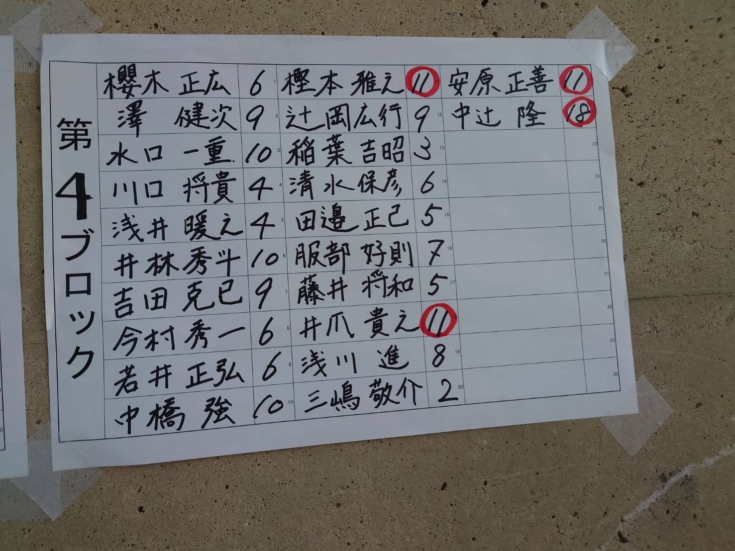 第4ブロック
櫻木 正広 6 樫本 雅之 11 安原 正善 11
澤 健次 9 辻岡 広行 9 中辻 隆 18
水口 一重 10 稲葉 吉昭 3
川口 将貴 4 清水 保彦 6
浅井 暖之 4 田邉 正己 5
井林 秀斗 10 服部 好則 7
吉田 克巳 9 藤井 将和 5
今村 秀一 6 井爪 貴之 11
若井 正弘 6 浅川 進 8
中橋 強 10 三嶋 敬介 2